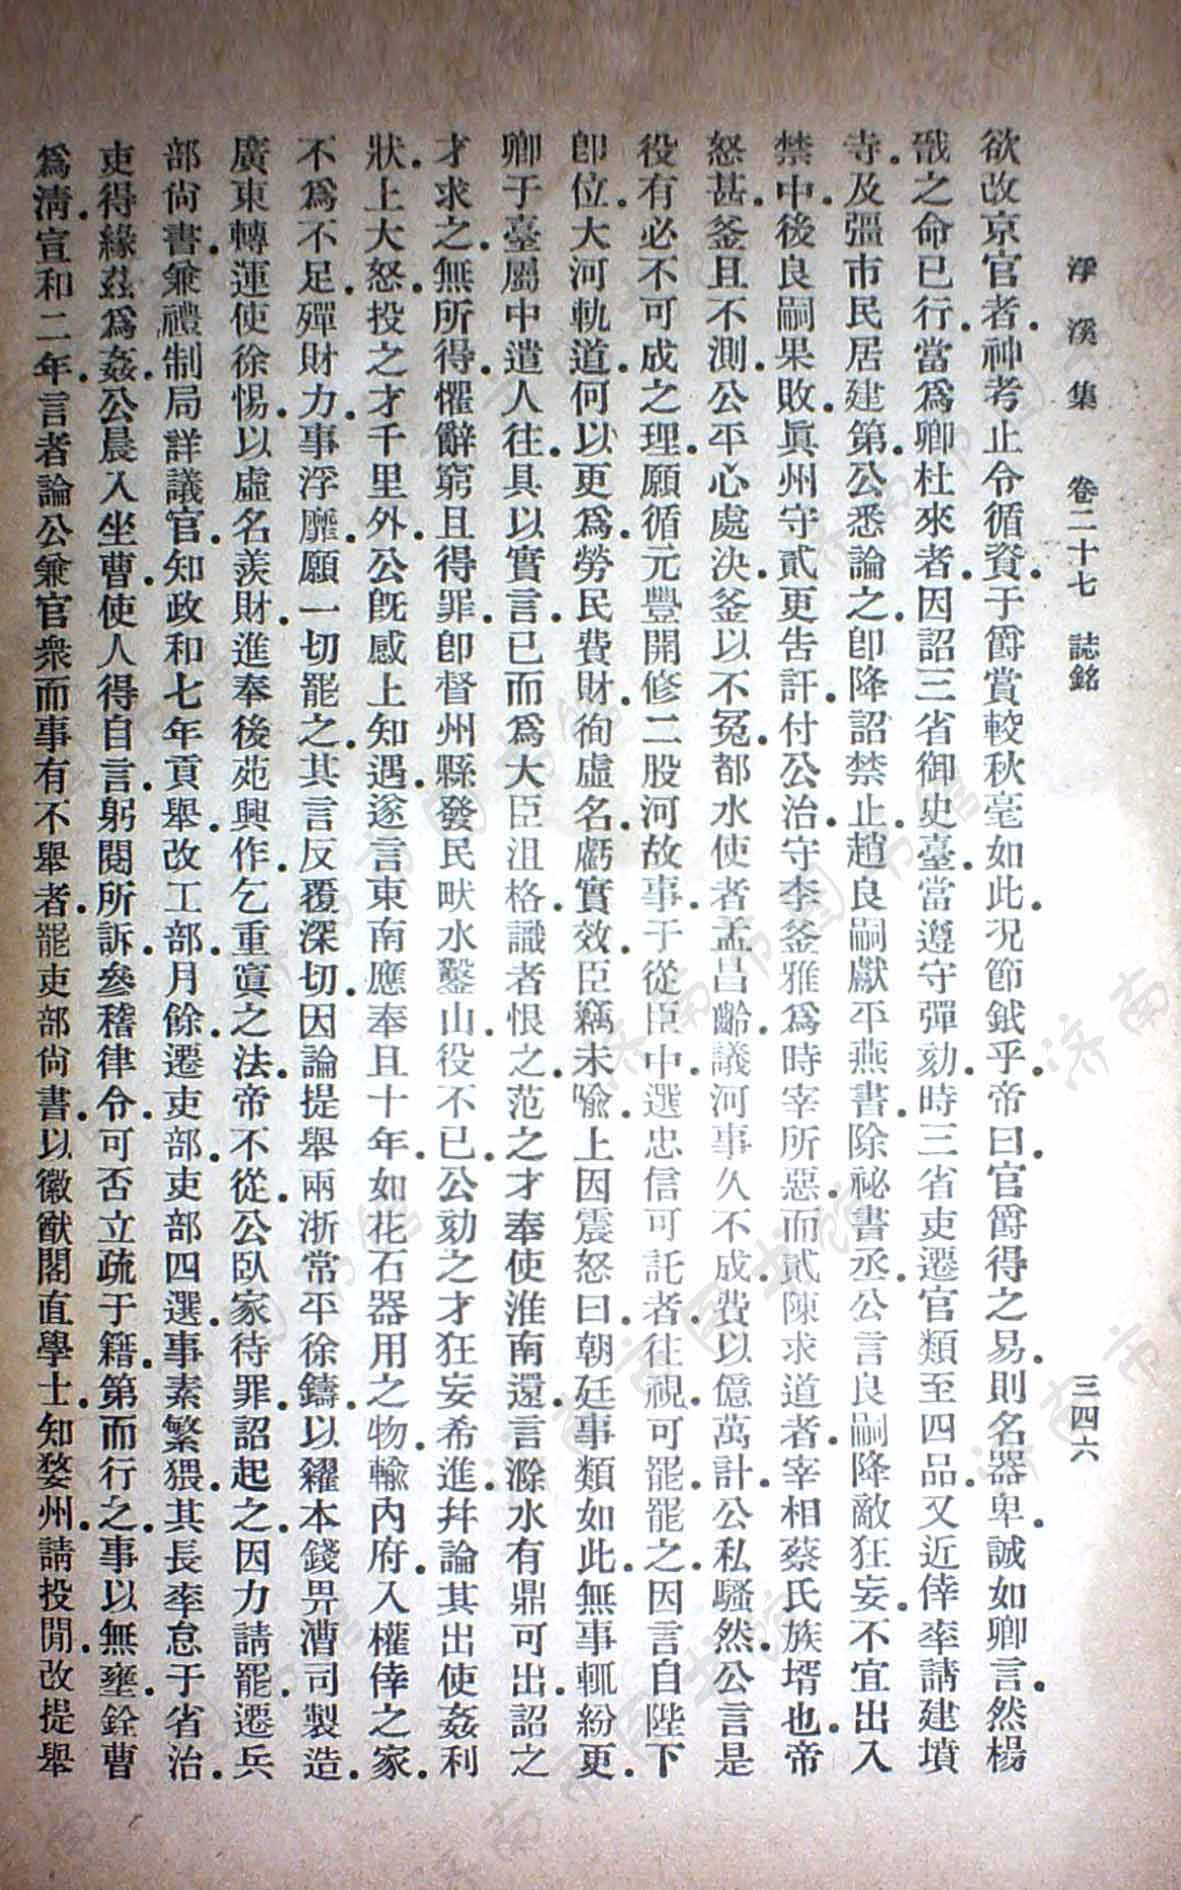 浮溪集 卷二十七 誌銘 三四六
欲改京官者神考止令循資于爵賞較秋毫如此況節鉞乎帝曰官爵得之易則名器卑誠如卿言然楊
戩之命已行當爲卿杜來者因詔三省御史臺當遵守彈劾時三省吏遷官類至四品又近倖率請建墳
寺及彊市民居建第公悉論之卽降詔禁止趙良嗣獻平燕書除祕書丞公言良嗣降敵狂妄不宜出入
禁中後良嗣果敗眞州守貳更告訐付公治守李釜雅爲時宰所惡而貳陳求道者宰相蔡氏族壻也帝
怒甚釜且不測公平心處決釜以不冤都水使者孟昌齡議河事久不成費以億萬計公私騷然公言是
役有必不可成之理願循元豐開修二股河故事于從臣中選忠信可託者往視可罷罷之因言自陛下
卽位大河軌道何以更爲勞民費財徇虛名虧實效臣竊未喻上因震怒曰朝廷事類如此無事輒紛更
卿于臺屬中遣人往具以實言已而爲大臣沮格識者恨之范之才奉使淮南還言滁水有鼎可出詔之
才求之無所得懼辭窮且得罪卽督州縣發民畎水鑿山役不已公劾之才狂妄希進幷論其出使姦利
狀上大怒投之才千里外公旣感上知遇遂言東南應奉且十年如花石器用之物輸內府入權倖之家
不爲不足殫財力事浮靡願一切罷之其言反覆深切因論提舉兩浙常平徐鑄以糴本錢畀漕司製造
廣東轉運使徐惕以虛名羨財進奉後苑興作乞重寘之法帝不從公臥家待罪詔起之因力請罷遷兵
部尙書兼禮制局詳議官知政和七年貢舉改工部月餘遷吏部吏部四選事素繁猥其長率怠于省治
吏得緣茲爲姦公晨入坐曹使人得自言躬閱所訴參稽律令可否立疏于籍第而行之事以無壅銓曹
爲淸宣和二年言者論公兼官衆而事有不舉者罷吏部尙書以徽猷閣直學士知婺州請投閒改提舉